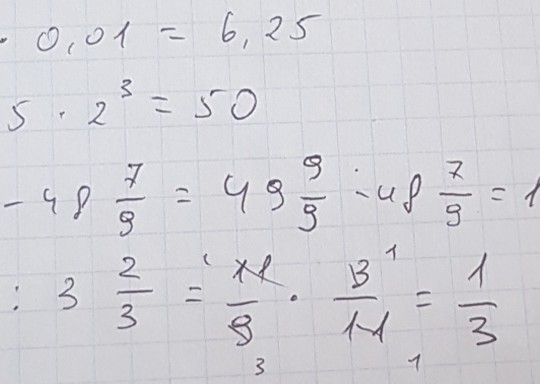 · 0,01 = 6,25
5 · 2³ = 50
- 48 7/9 = 49 9/9 - 48 7/9 = 1
: 3 2/3 = 11/9 · 3/11 = 1/3